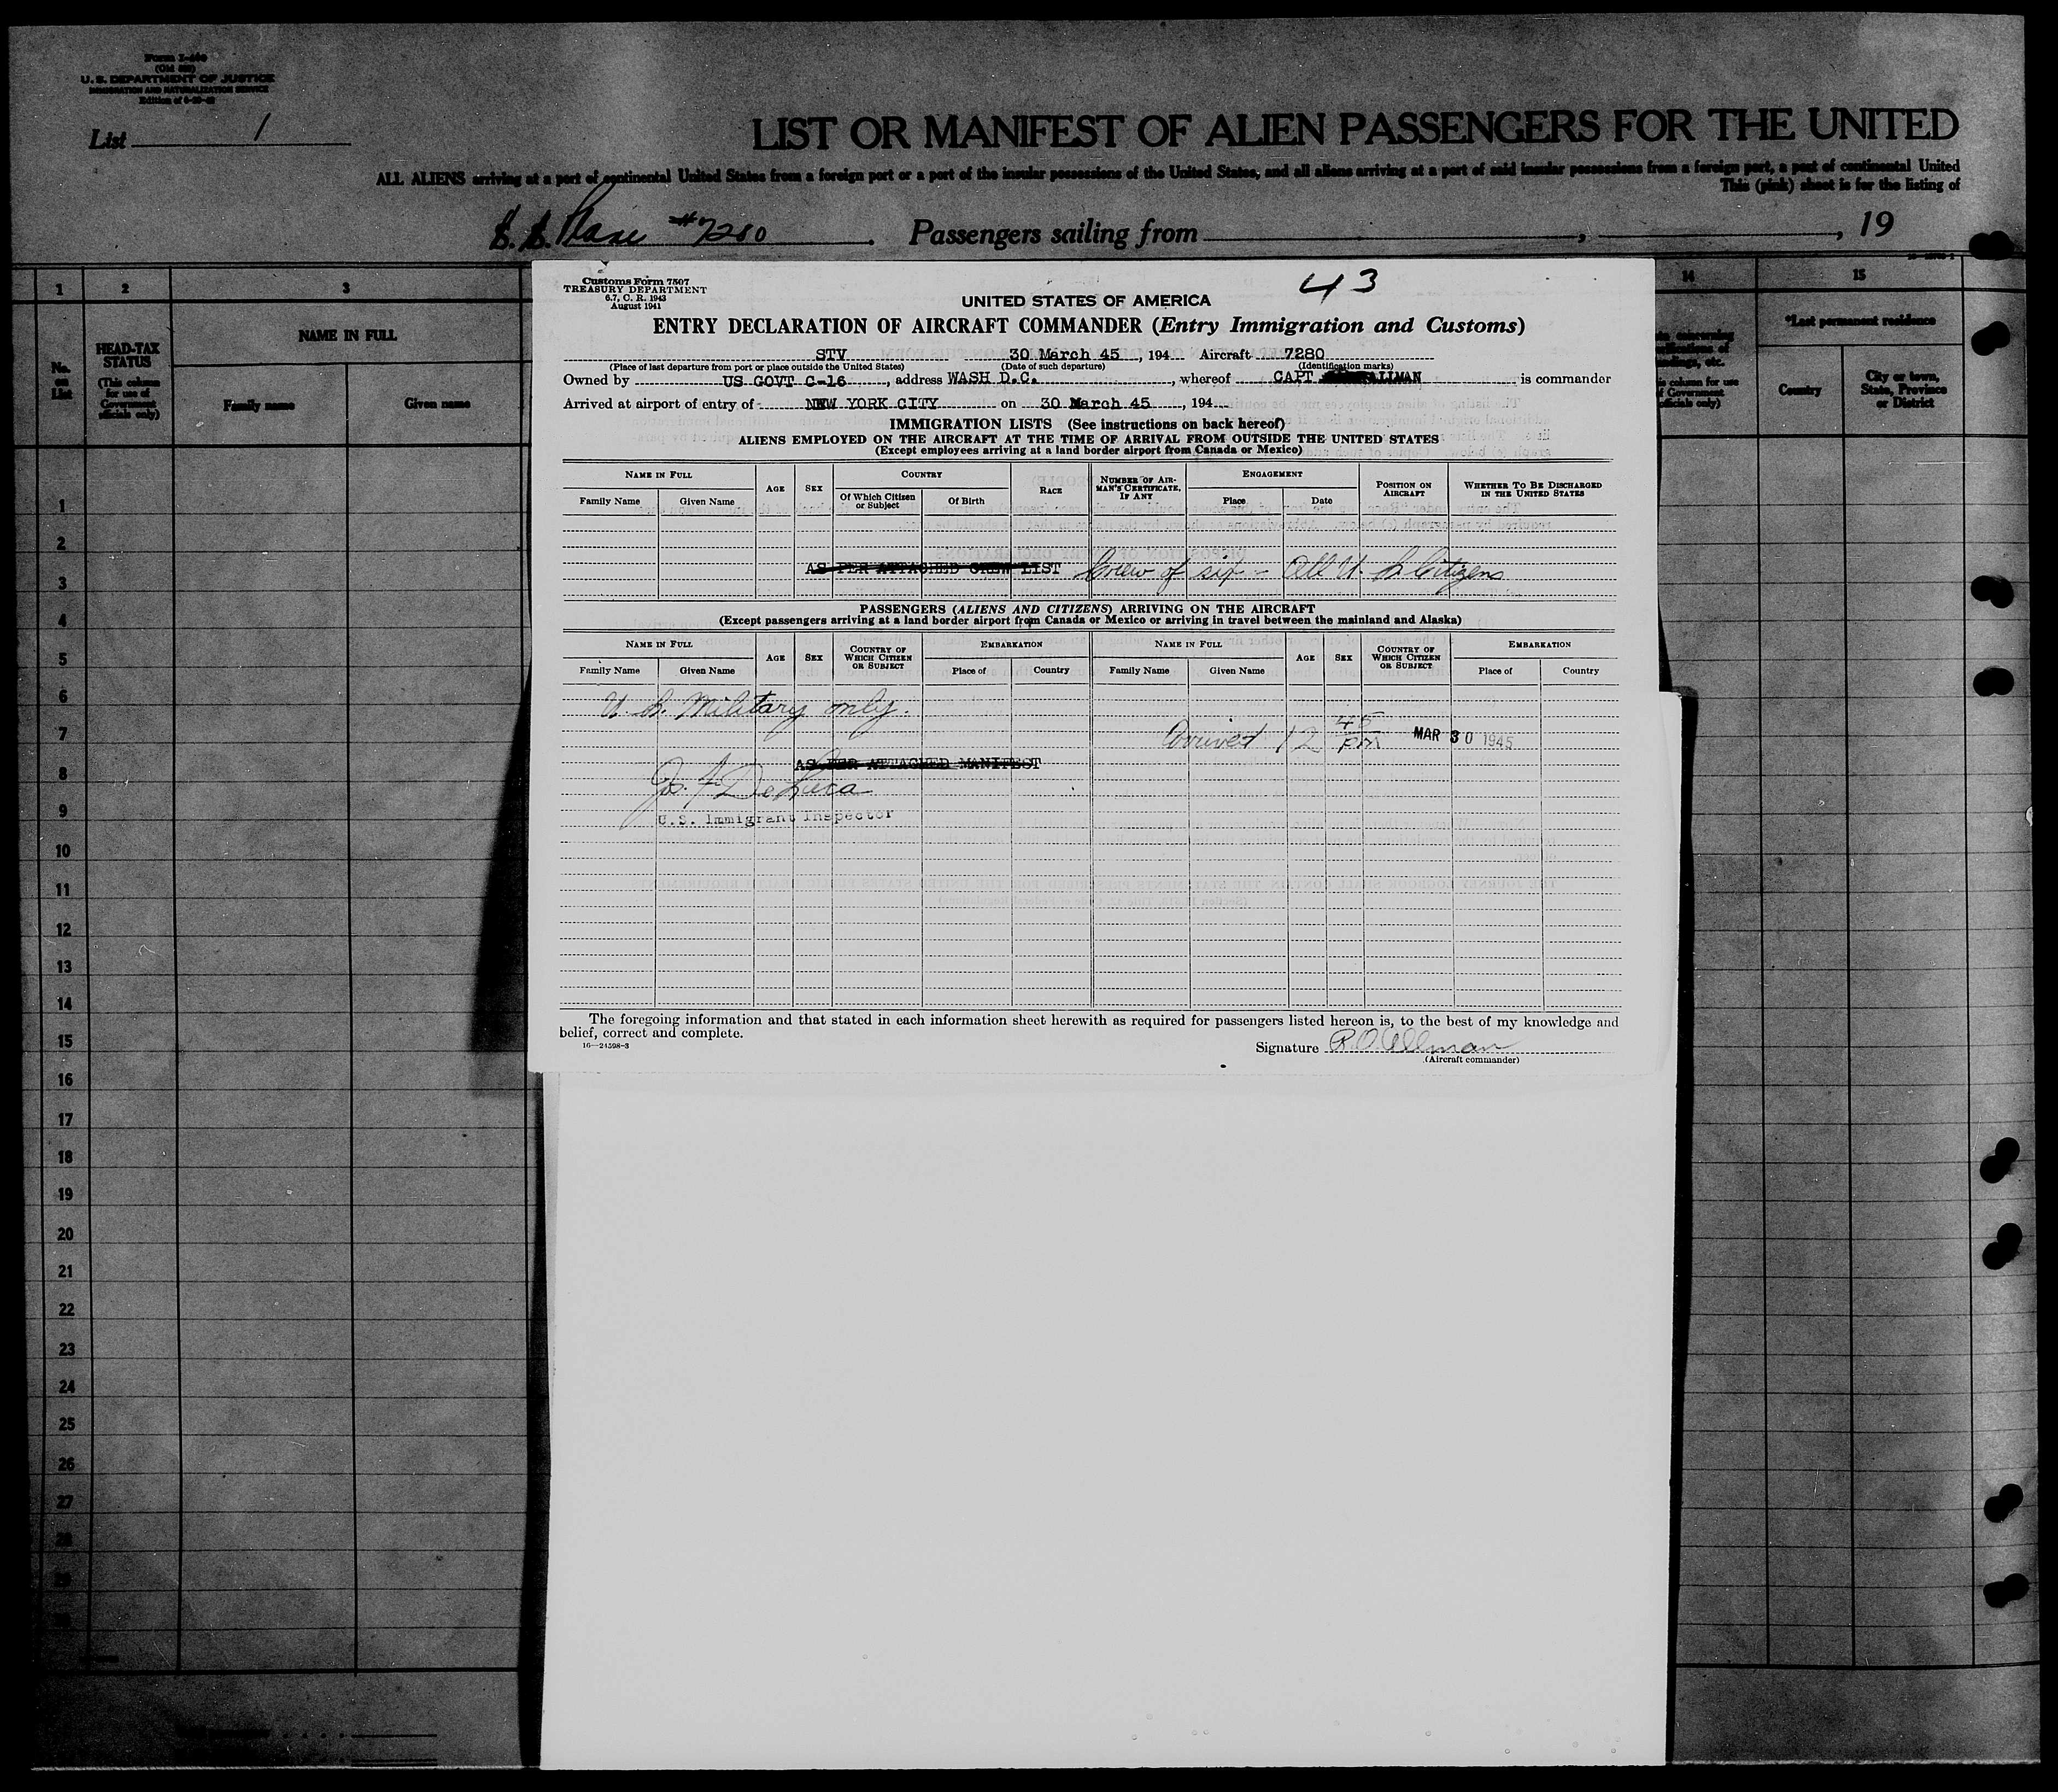 Form I-
U. S. DEPARTMENT OF JUSTICE
IMMIGRATION AND NATURALIZATION SERVICE
Edition of
List 1
LIST OR MANIFEST OF ALIEN PASSENGERS FOR THE UNITED
ALL ALIENS arriving at a port of continental United States from a foreign port or a port of the insular possessions of the United States, and all aliens arriving at a port of said insular possessions from a foreign port, a port of continental United
This (pink) sheet is for the listing of
Plane #7280 . Passengers sailing from , , 19
1 2 3 14 15
HEAD-TAX STATUS
(This column for use of Government officials only)
NAME IN FULL
No. on List
Family name Given name
*Last permanent residence
Country
City or town, State, Province or District
Customs Form 7507
TREASURY DEPARTMENT
6.7, C. R. 1943
August 1941
43
UNITED STATES OF AMERICA
ENTRY DECLARATION OF AIRCRAFT COMMANDER (Entry Immigration and Customs)
STV 30 March 45 , 194 Aircraft 7280
(Place of last departure from port or place outside the United States) (Date of such departure) (Identification marks)
Owned by US GOVT C-16 , address WASH D.C. , whereof CAPT ALLMAN is commander
Arrived at airport of entry of NEW YORK CITY on 30 March 45 , 194
IMMIGRATION LISTS (See instructions on back hereof)
ALIENS EMPLOYED ON THE AIRCRAFT AT THE TIME OF ARRIVAL FROM OUTSIDE THE UNITED STATES
(Except employees arriving at a land border airport from Canada or Mexico)
NAME IN FULL AGE SEX COUNTRY RACE NUMBER OF AIRMAN'S CERTIFICATE, IF ANY ENGAGEMENT POSITION ON AIRCRAFT WHETHER TO BE DISCHARGED IN THE UNITED STATES
Family Name Given Name Of Which Citizen or Subject Of Birth Place Date
AS PER ATTACHED CREW LIST Crew of six - All U. S. Citizens
PASSENGERS (ALIENS AND CITIZENS) ARRIVING ON THE AIRCRAFT
(Except passengers arriving at a land border airport from Canada or Mexico or arriving in travel between the mainland and Alaska)
NAME IN FULL AGE SEX COUNTRY OF WHICH CITIZEN OR SUBJECT EMBARKATION NAME IN FULL AGE SEX COUNTRY OF WHICH CITIZEN OR SUBJECT EMBARKATION
Family Name Given Name Place of Country Family Name Given Name Place of Country
U. S. Military only.
Arrived 12 45 PM MAR 30 1945
AS PER ATTACHED MANIFEST
Jos. F. DeLuca
U.S. Immigrant Inspector
The foregoing information and that stated in each information sheet herewith as required for passengers listed hereon is, to the best of my knowledge and
belief, correct and complete.
16—24598-3
Signature R.O. Allman
(Aircraft commander)
1
2
3
4
5
6
7
8
9
10
11
12
13
14
15
16
17
18
19
20
21
22
23
24
25
26
27
28